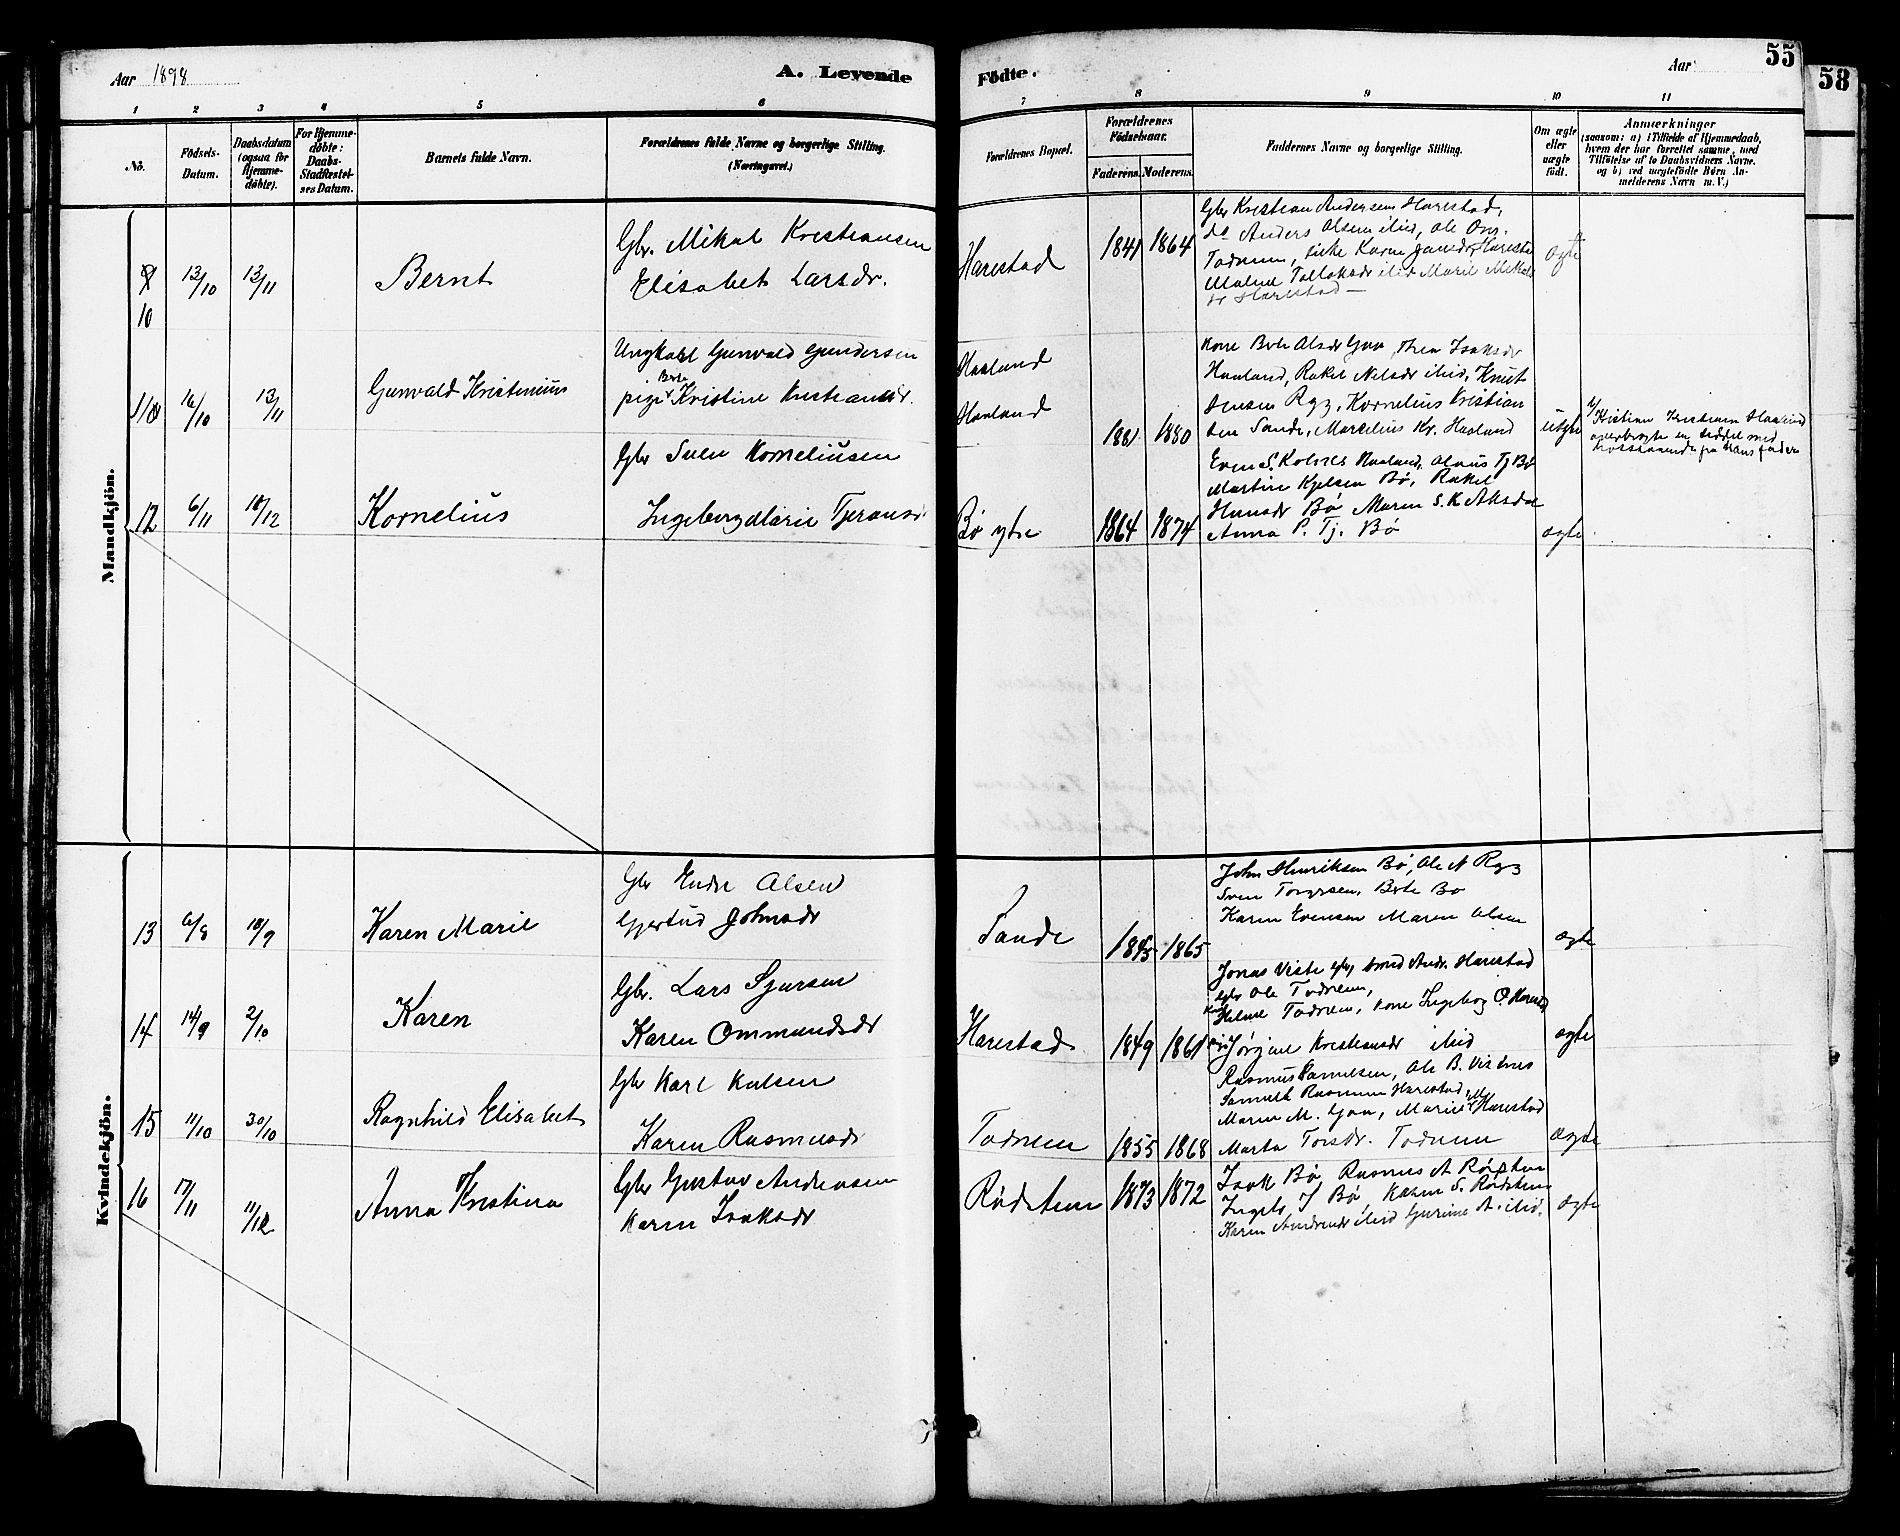 Aar 1898
A. Levende
Födte.
Aar
55
58
1 2 3 4 5 6
7 8 9 10 11
No.
Födsels-
Datum.
Daabsdatum
(ogsaa for
Hjemme-
döbte).
For Hjemme-
döbte:
Daabs-
Stadfæstel-
ses Datum.
Barnets fulde Navn.
Forældrenes fulde Navne og borgerlige Stilling.
(Næringsvei.)
Forældrenes Bopæl.
Forældrenes
Födselsaar.
Faderens. Moderens.
Faddernes Navne og borgerlige Stilling.
Om ægte
eller
uægte
födt.
Anmærkninger
(saasom: a) i Tilfælde af Hjemmedaab,
hvem der har forrettet samme, med
Tilföielse af to Daabsvidners Navne.
og b) ved uægtefödte Börn An-
melderens Navn m. V.)
Mandkjön.
10
13/10 13/11
Bernt
Gbr. Mikal Kristiansen
Elisabet Larsdr.
Harestad
1841 1864
Gbr Kristian Andersen Harestad,
do Anders Olsen ibid, Ole
Todnem, Harestad
Malene Tollaksdr ibid Marie Mikals
dr Harestad
ægte
11
16/10 13/11
Gunvald Kristenius
Ungkarl Gunvald Gundersen
pige Berte Kristine Kristiansdr.
Haaland
Haaland
1881 1880
Kone Berte Olsdr Goa, Isaksdr
Haaland, Rakel Nilsdr ibid, Knut
Jensen Ryg, Kornelius Kristian
sen Sande, Marselius Kr. Haaland
uægte
Kristian Kristiansen Haaland
overbragte en seddel med
fra Hans fader
12
6/11 18/12
Kornelius
Gbr Sven Korneliusen
Ingeborg Marie Tjeransdr
Bø ytre
1864 1874
Even S. Kolnes Haaland, Olaus Tj Bø
Martin Kjelsen Bø, Rakel
Hansdr Bø Maren S. K Aksdal
Anna P. Tj. Bø
ægte
Kvindekjön.
13
6/8 18/9
Karen Marie
Gbr Endre Olsen
Gjertud Johnsdr
Sande
1845 1865
John Henriksen Bø, Ole A Ryg
Sven Torgersen, Berte Bø
Karen Evensen Maren Olsen
ægte
14
14/9 2/10
Karen
Gbr. Lars Sjursen
Karen Ommundsdr
Harestad
1849 1861
Jonas Viste gbr, Andr. Harestad
gbr Ole Todnem,
Helene Todnem, kone Ingeborg O. Harestad
Jørgine Kristiansdr ibid
ægte
15
11/10 30/10
Ragnhild Elisabet
Gbr Karl Kalsen
Karen Rasmusdr
Todnem
1855 1868
Rasmus Danielsen, Ole B. Vistnes
Samuel Rasmussen Harestad,
Maren M. Goa, Marie Harestad
Marta Torsdr. Todnem
ægte
16
17/11 11/12
Anna Kristina
Gbr Gustav Andersen
Karen Isaksdr
Rødstein
1873 1872
Isak Bø, Rasmus A Rødstein
Ingeb. J Bø, Karen S. Rødstein
Karen Andreasdr ibid Gurine A. ibid.
ægte